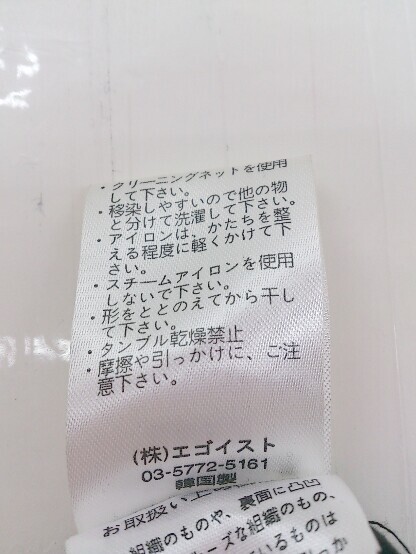 ・クリーニングネットを使用
して下さい。
・移染しやすいので他の物
と分けて洗濯して下さい。
・アイロンは、かたちを整
える程度に軽くかけて下
さい。
・スチームアイロンを使用
しないで下さい。
・形をととのえてから干し
て下さい。
・タンブル乾燥禁止
・摩擦や引っかけに、ご注
意下さい。
(株)エゴイスト
03-5772-5161
韓国製
お取扱い上
組織のものや、裏面に凸凹
ーズな組織のもの、
ているものは